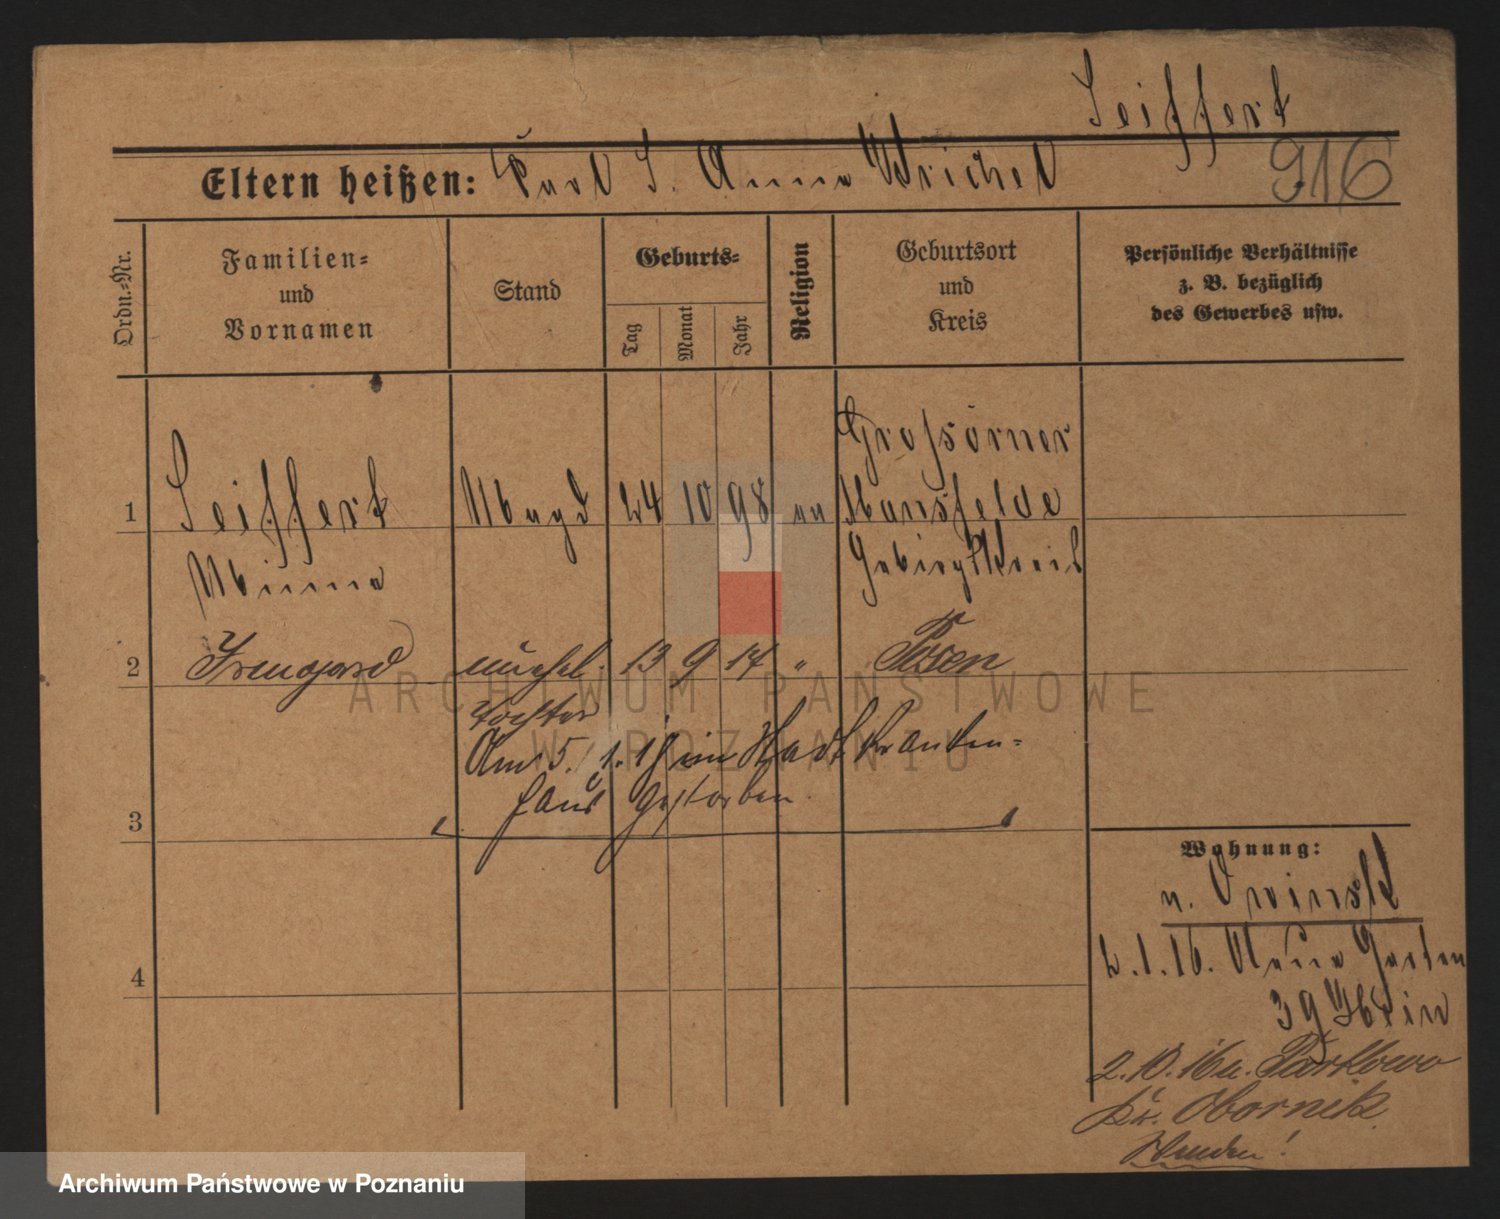 Seiffert
916
Eltern heißen: Karl S. Anna Weichel
Ordn.-Nr.
Familien-
und
Vornamen
Stand
Geburts-
Tag
Monat
Jahr
Religion
Geburtsort
und
Kreis
Persönliche Verhältnisse
z. B. bezüglich
des Gewerbes usw.
Grossörner
1 Seiffert Magd 24 10 98 Mansfelder
Minna Gebirgskreis
2 Irmgard unehel. 13 9 17 " Posen
Tochter
Am 5. 1. 18 im Stadtkranken-
haus gestorben.
3
Wohnung:
n.
4
2.1.16. Neue Garten
39
2.10.16 n. Parkowo
Kr. Obornik.
Wenden!
ARCHIWUM PAŃSTWOWE
W POZNANIU
Archiwum Państwowe w Poznaniu